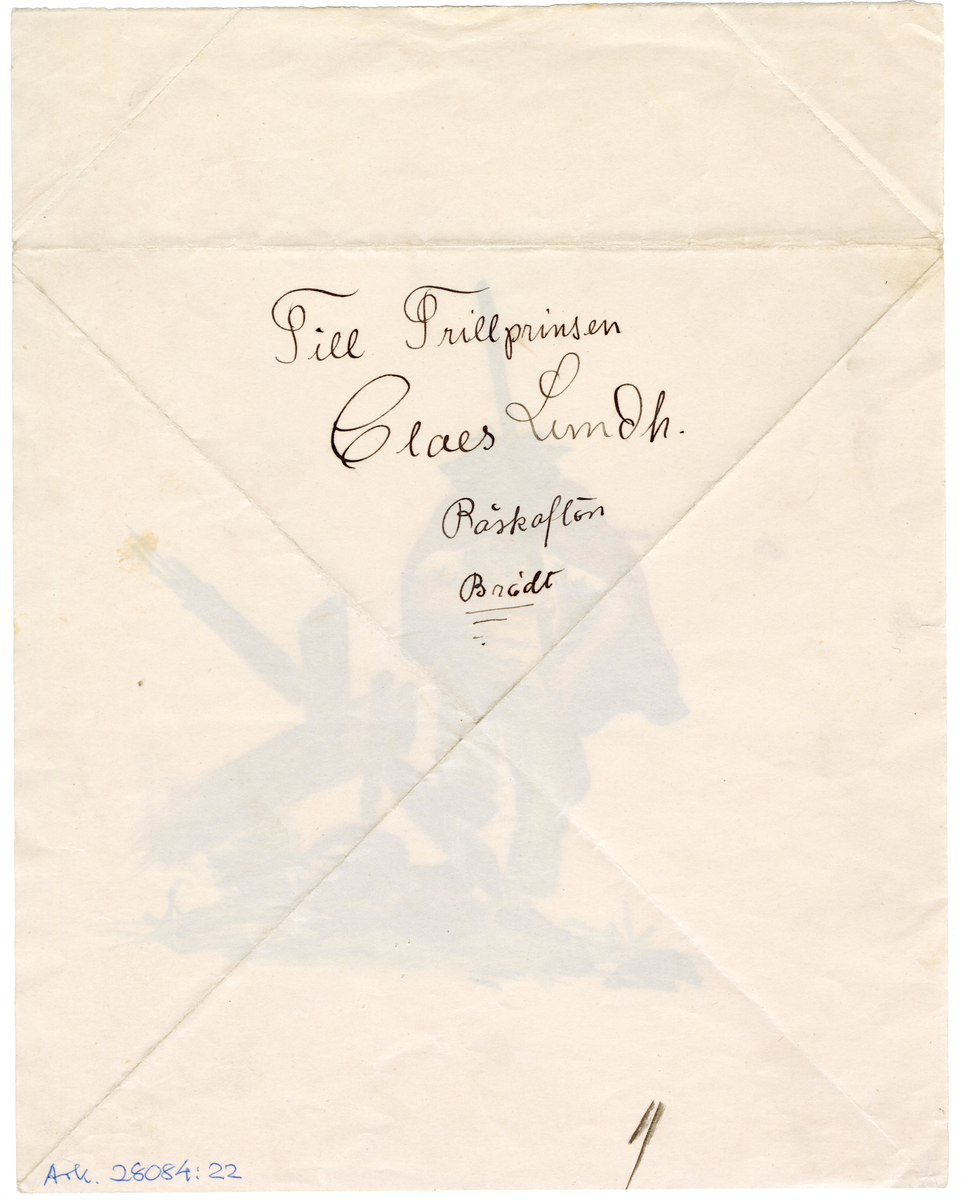 Till Trillprinsen
Claes Lundh.
Påskafton
Brådt
Ark. 28084:22